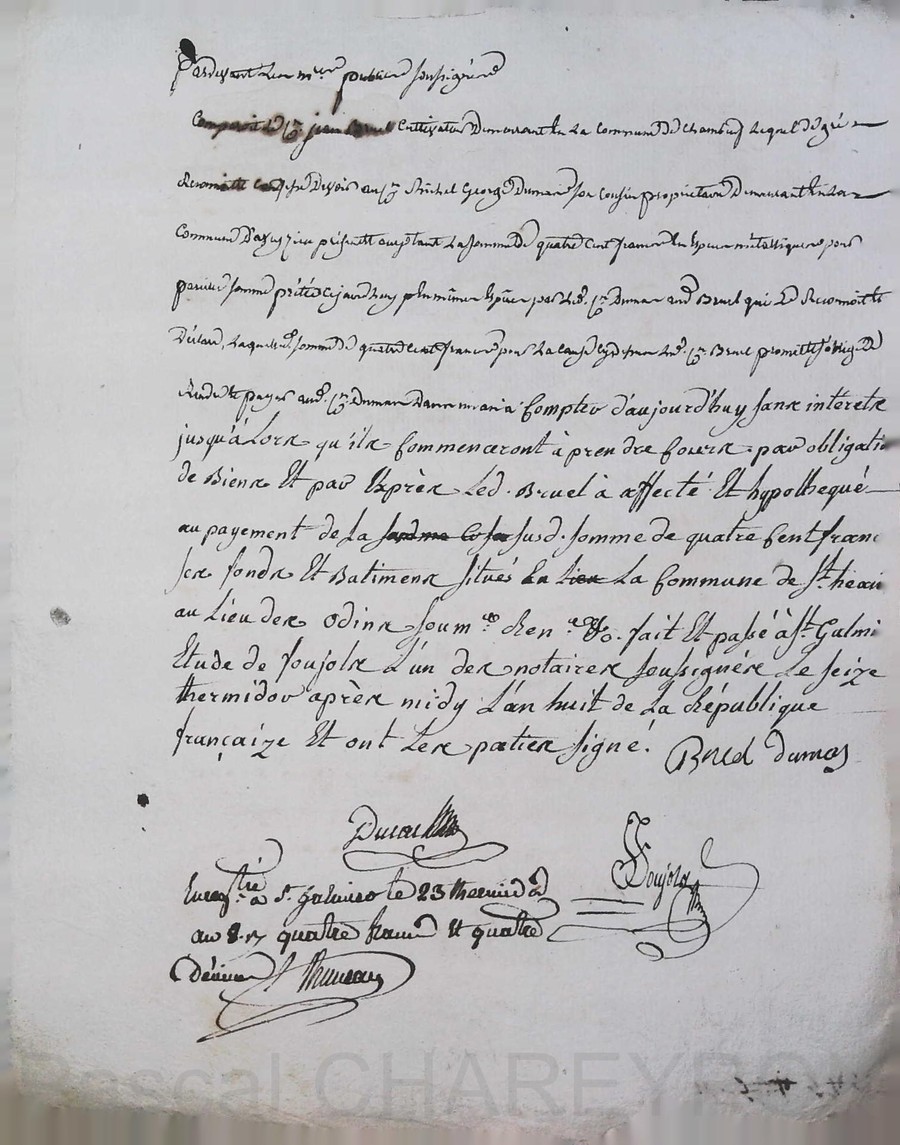 Pardevant les nres publics soussignés
Comparoit le Cn. jean Bruel Cultivateur Demeurant En La Commune De Chambeuf Lequel de gré
Reconnoitt Devoir au Cn Michel George Dumas son Cousin proprietaire Demeurant En La
Commune D'aveyzieu présent acceptant La somme De quatre Cent francs En Espece métalliques pour
pareille somme prétée cejourd'huy En mêmes Espèces par led. Cn. Dumas aud. Bruel qui Le Reconnoit Et
Déclare, Laquelle d. somme De quatre Cent francs pour La Cause Cy dessus Led. Cn. Bruel promet Et s'oblige De
Rendre Et payer aud. Cn. Dumas Dans un an à Compter d'aujourd'huy sans intérets
jusqu'à Lors qu'ils Commenceront à prendre Cours par obligation
de Biens Et par Exprès Led. Bruel à affecté Et hypothequé
au payement de La susd. somme de quatre Cent francs
ses fonds Et Batimens situés La Commune de St. heau
au Lieu des Odins soum. on Ren. on &o. fait Et passé à St. Galmi
Etude de Soujols L'un des notaires soussignés Le seize
thermidor après midy L'an huit de La République
françaize Et ont Les parties signé.
Bruel Dumas
Soujols
Enregtré à St. Galmier le 23 thermidor
an 8. R quatre francs Et quatre
Décimes